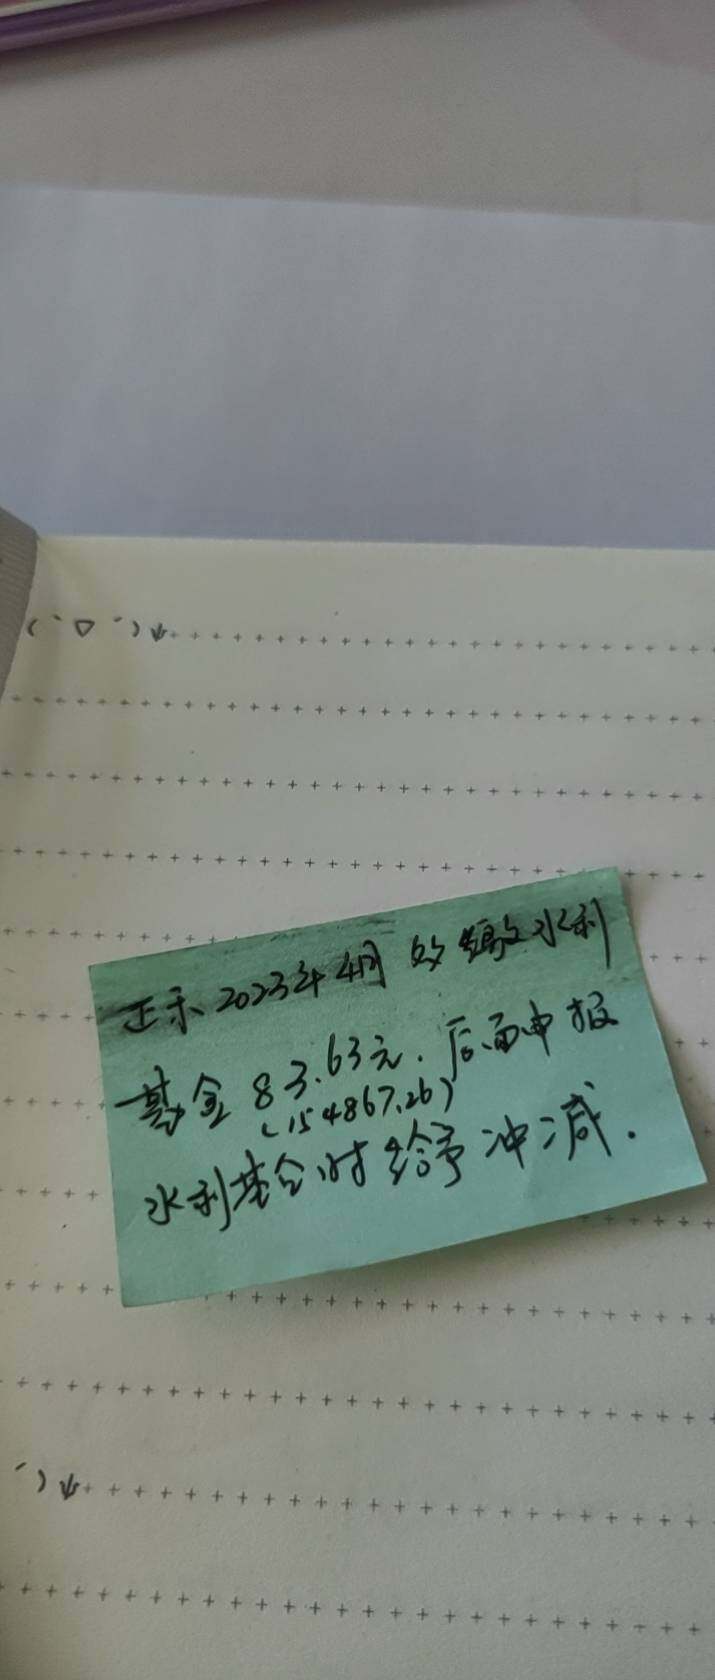 (｀ロ´)ψ
正禾2023年4月 多缴水利
基金 83.63元. 后面申报
(154867.26)
水利基金时给予冲减.
´)ψ